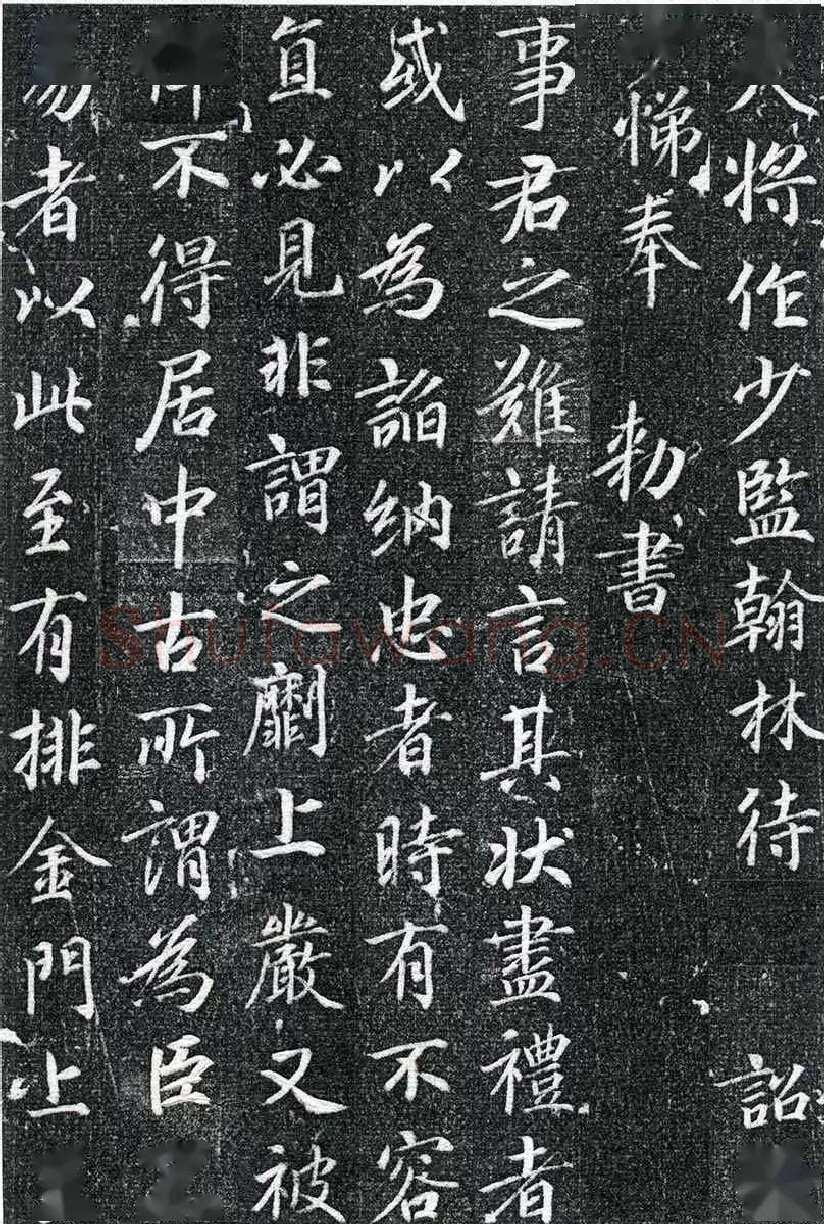 将作少監翰林待詔
悌奉勅書
事君之難請言其状盡禮者
或以為諂納忠者時有不容
直必見非謂之劘上嚴又被
不得居中古所謂為臣
易者以此至有排金門上
Shufawang.CN